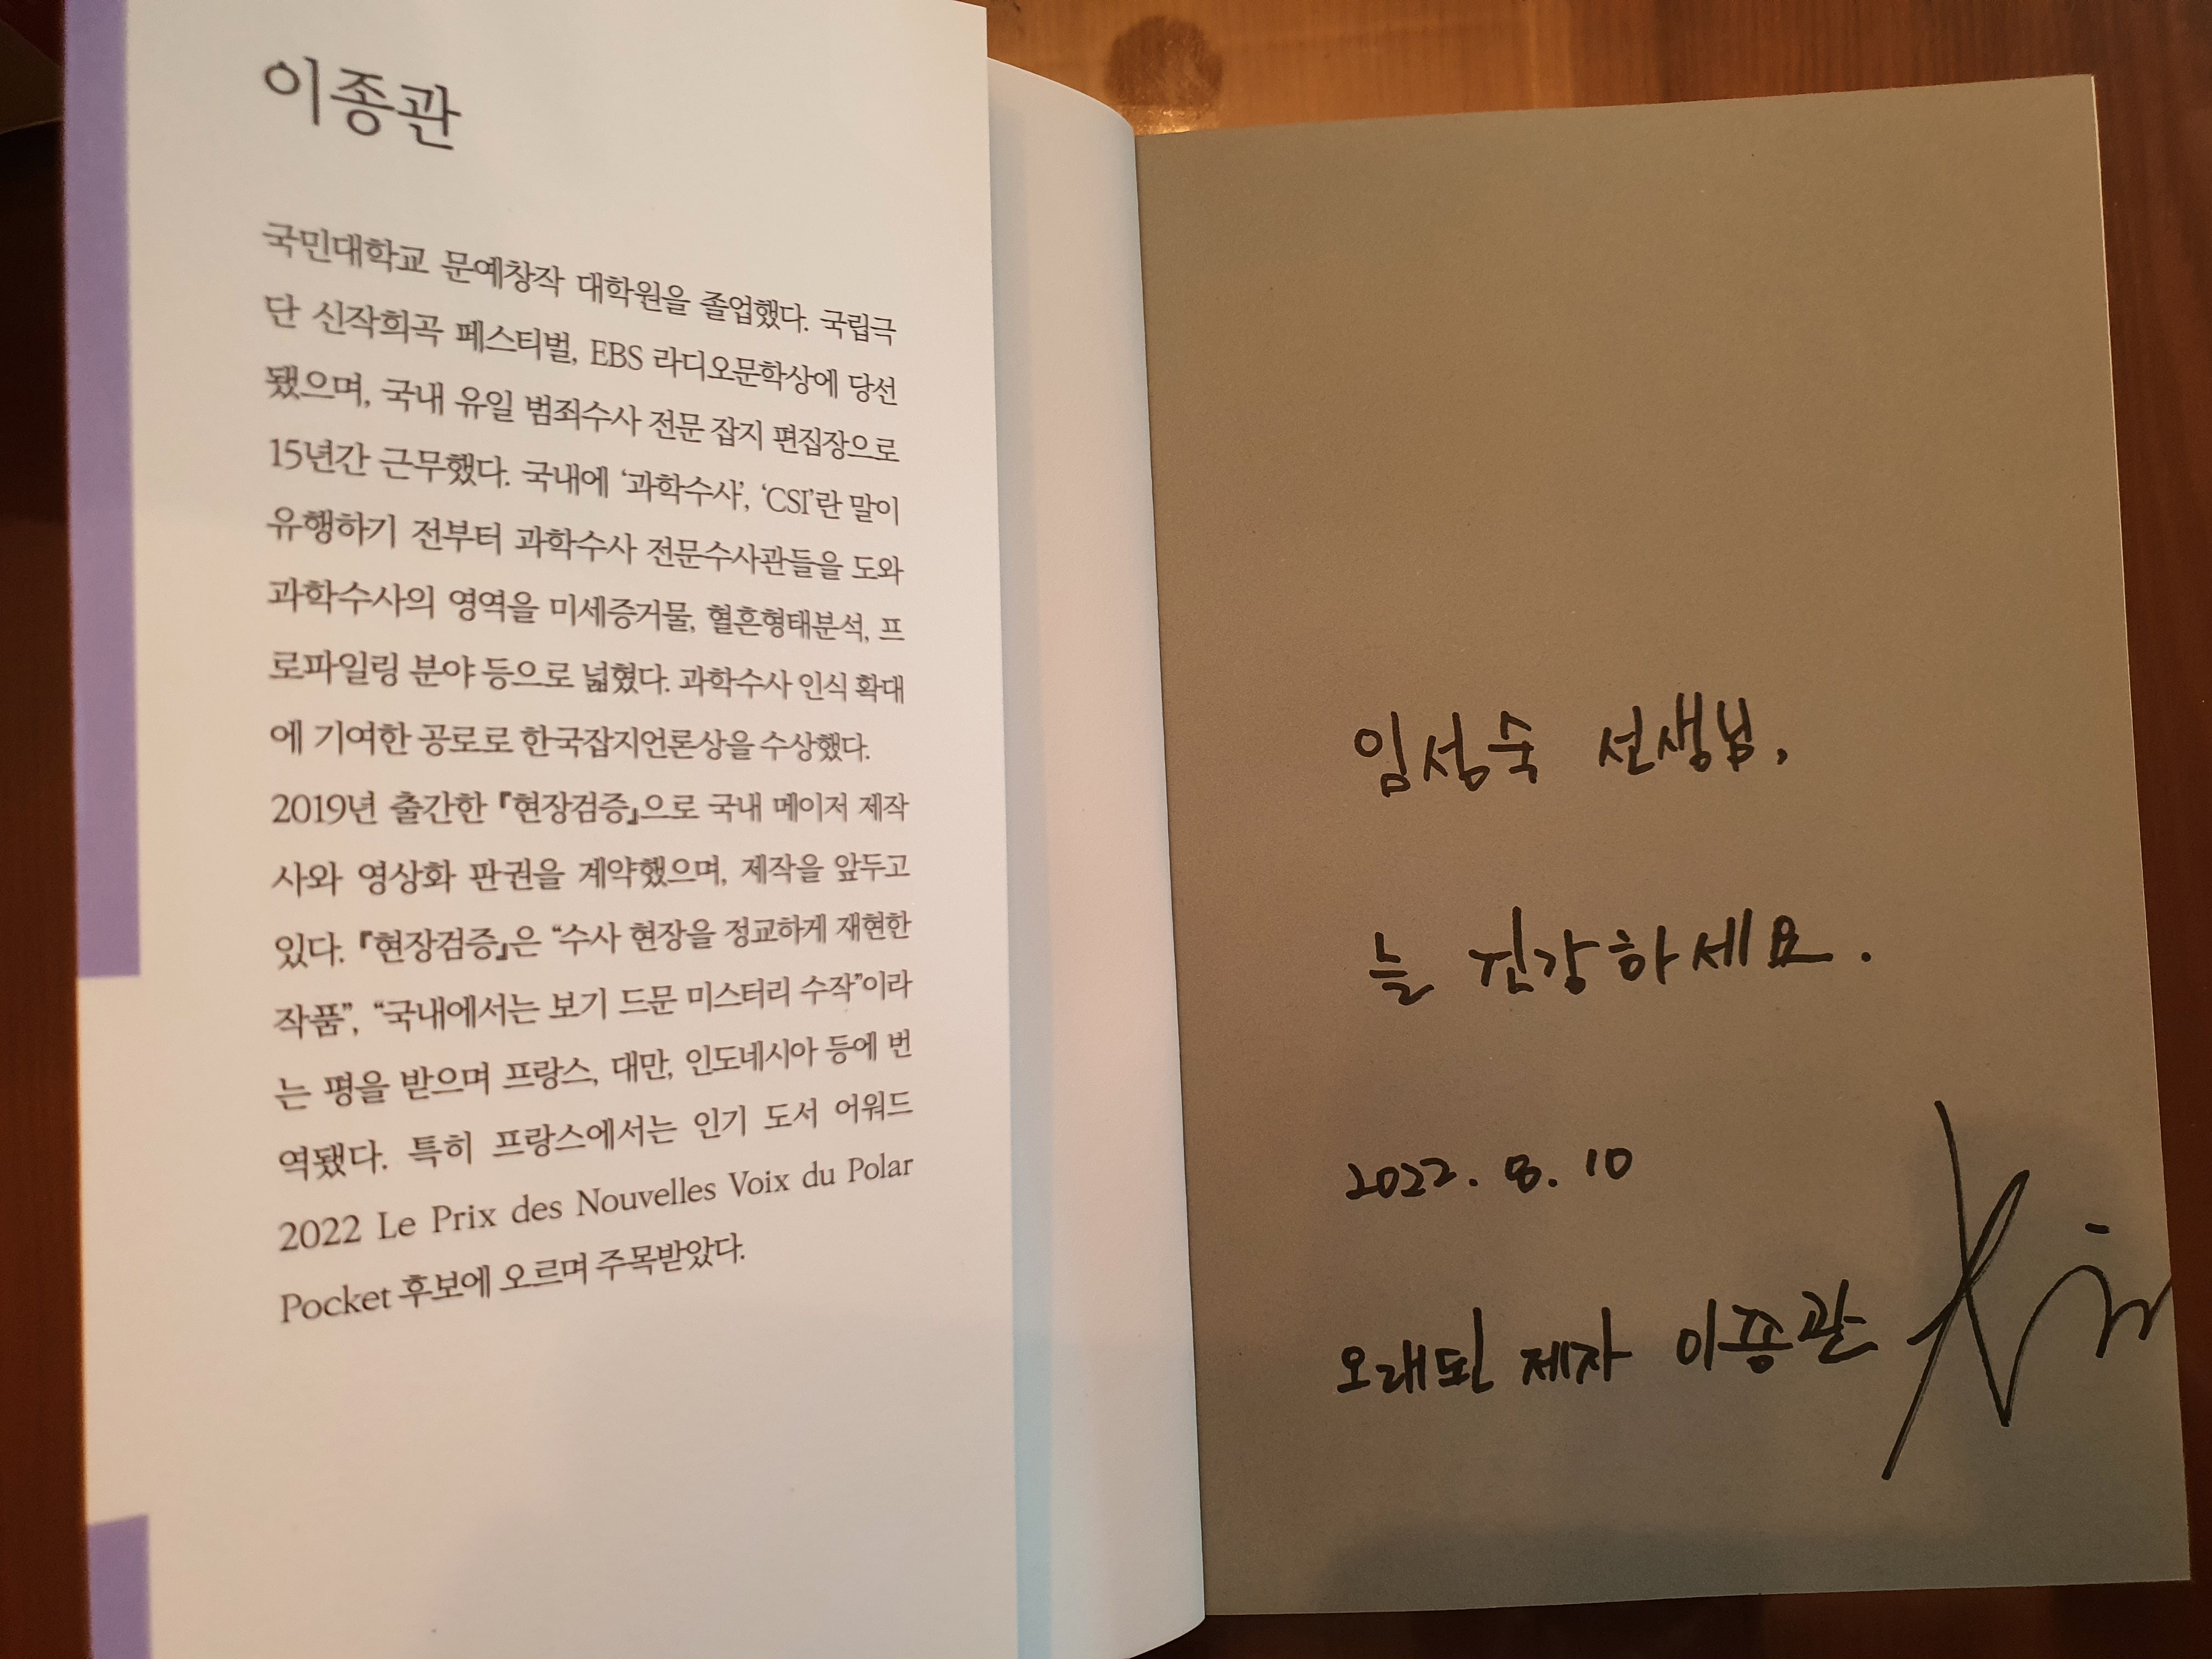 이종관
국민대학교 문예창작 대학원을 졸업했다. 국립극
단 신작희곡 페스티벌, EBS 라디오문학상에 당선
됐으며, 국내 유일 범죄수사 전문 잡지 편집장으로
15년간 근무했다. 국내에 ‘과학수사’, ‘CSI’란 말이
유행하기 전부터 과학수사 전문수사관들을 도와
과학수사의 영역을 미세증거물, 혈흔형태분석, 프
로파일링 분야 등으로 넓혔다. 과학수사 인식 확대
에 기여한 공로로 한국잡지언론상을 수상했다.
2019년 출간한 『현장검증』으로 국내 메이저 제작
사와 영상화 판권을 계약했으며, 제작을 앞두고
있다. 『현장검증』은 “수사 현장을 정교하게 재현한
작품”, “국내에서는 보기 드문 미스터리 수작”이라
는 평을 받으며 프랑스, 대만, 인도네시아 등에 번
역됐다. 특히 프랑스에서는 인기 도서 어워드
2022 Le Prix des Nouvelles Voix du Polar
Pocket 후보에 오르며 주목받았다.
임성숙 선생님,
늘 건강하세요.
2022. 8. 10
오래된 제자 이종관